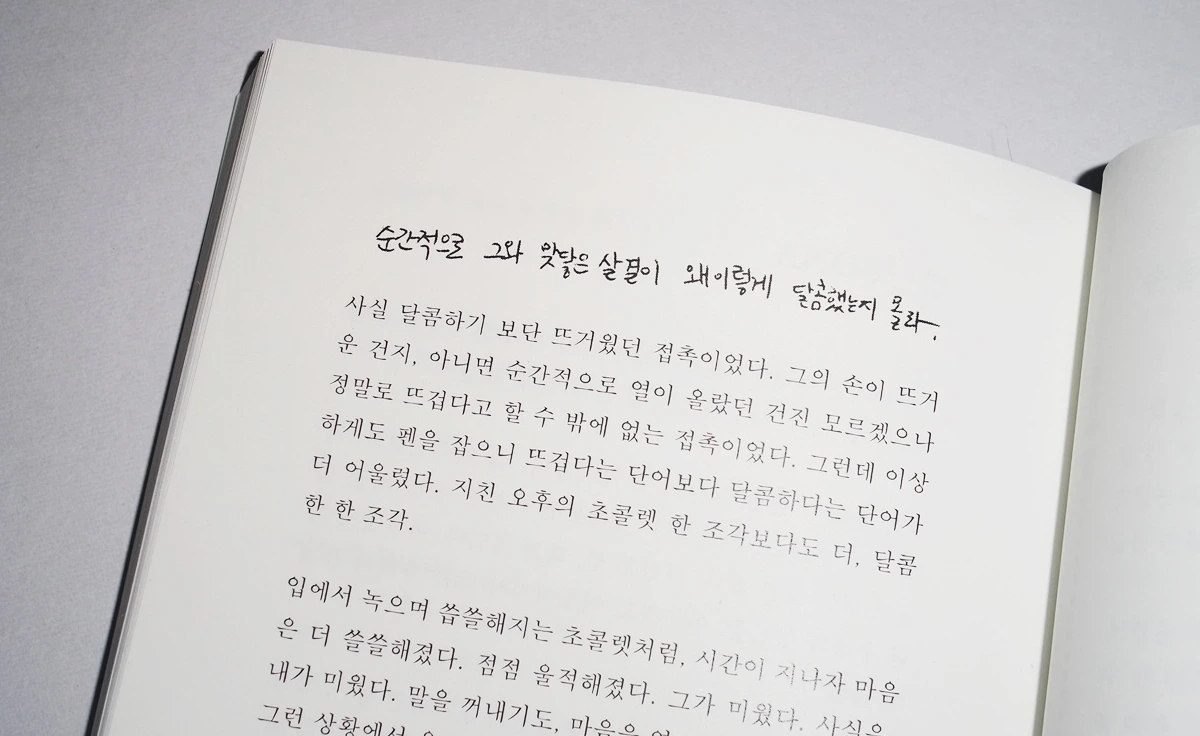 순간적으로 그와 맞닿은 살결이 왜 이렇게 달콤했는지 몰라.
사실 달콤하기 보단 뜨거웠던 접촉이었다. 그의 손이 뜨거
운 건지, 아니면 순간적으로 열이 올랐던 건진 모르겠으나
정말로 뜨겁다고 할 수 밖에 없는 접촉이었다. 그런데 이상
하게도 펜을 잡으니 뜨겁다는 단어보다 달콤하다는 단어가
더 어울렸다. 지친 오후의 초콜렛 한 조각보다도 더, 달콤
한 한 조각.
입에서 녹으며 씁쓸해지는 초콜렛처럼, 시간이 지나자 마음
은 더 쓸쓸해졌다. 점점 울적해졌다. 그가 미웠다. 사실은
내가 미웠다. 말을 꺼내기도, 마음을
그런 상황에서